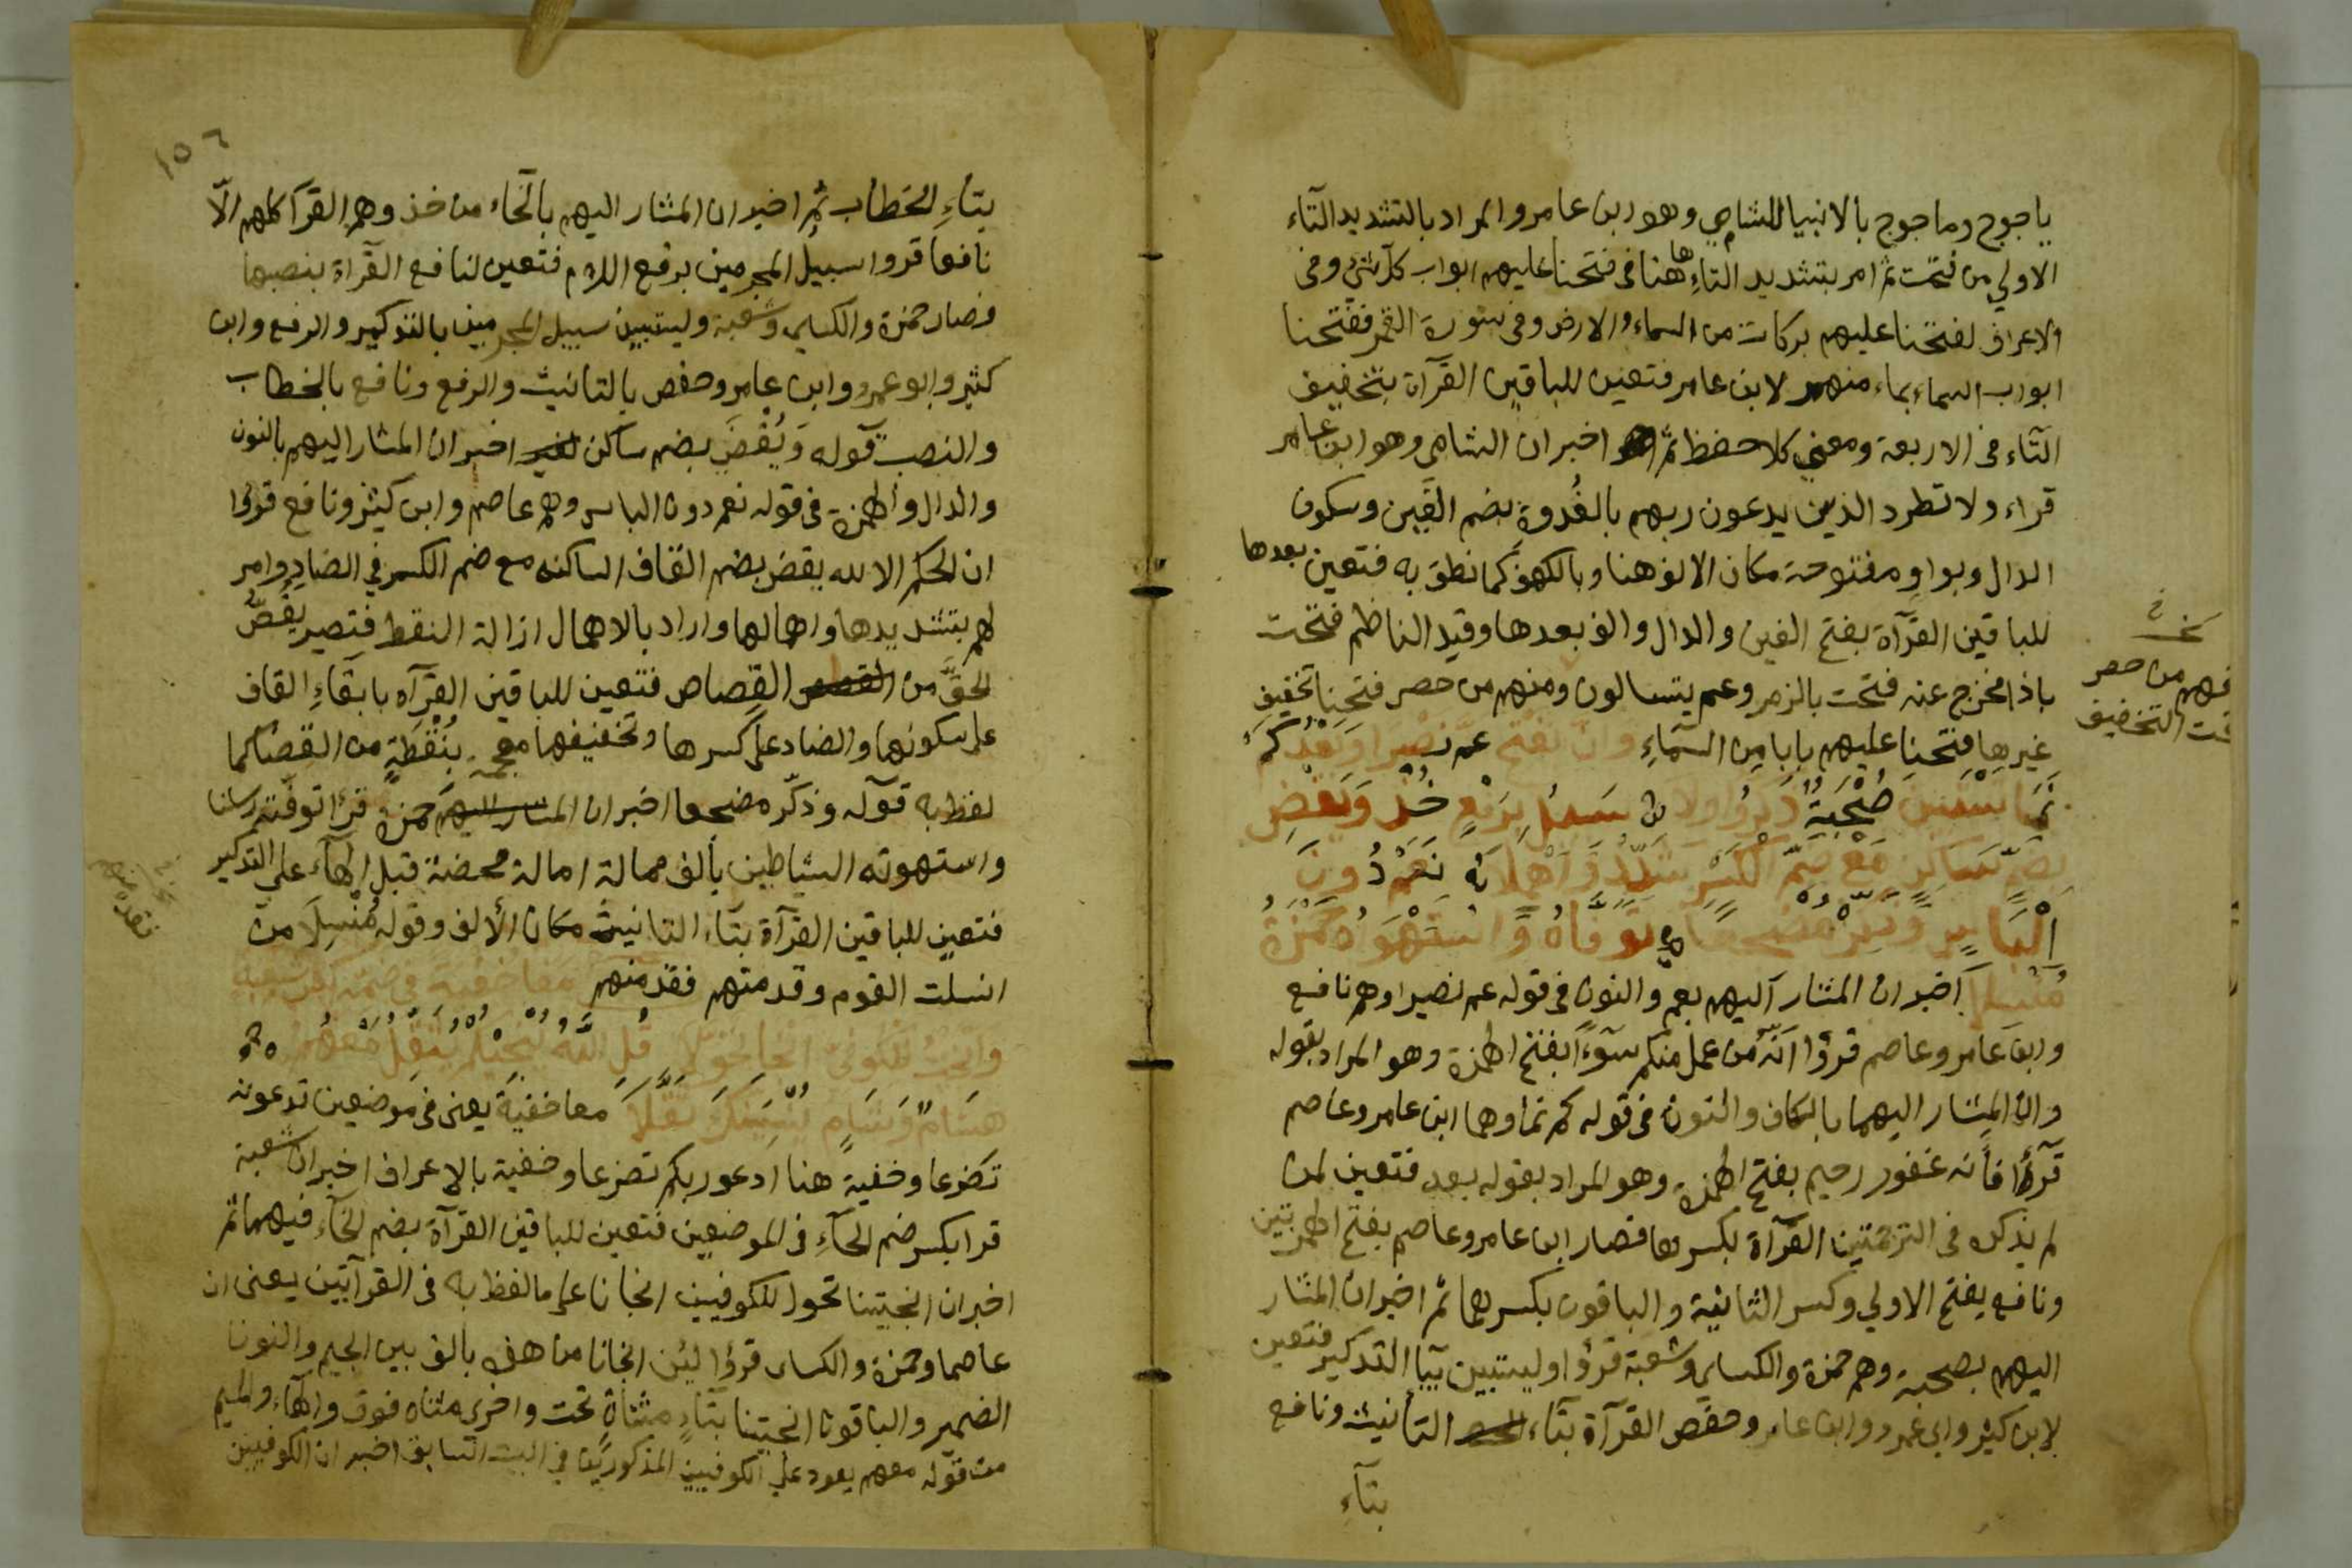 ياجوج وماجوج بالانبيا للشامي وهو ابن عامر والمراد بالتشديد التآء
الاولي من فتحت ثم امر بتشديد التاءِ ها هنا في فتحنا عليهم ابواب كل شئ وفي
الاعراف لفتحنا عليهم بركات من السماء والارض وفي سورة القمر ففتحنا
ابواب السماء بماء منهمر لابن عامر فتعين للباقين القرآة بتخفيف
التآء في الاربعة ومعني كلا حفظ ثم اخبر ان الشامي وهو ابن عامر
قراء ولا تطرد الذين يدعون ربهم بالغُدوةِ بضم الغين وسكون
الدال وبواوٍ مفتوحة مكان الالف هنا وبالكهف كما نطق به فتعين بعدها
للباقين القرآة بفتح الغين والدال والف بعدها وقيد الناظم فتحت
باذا مخرج عنه فتحت بالزمر وعم يتسالون ومنهم من حصر فتحنا تخفيف
غيرها فتحنا عليهم بابا من السمآءِ وان بفتح عم نصرا وبعد كم
نما يستبين صُحْبَةٌ ذكروا ولا ن سبيل برفع خذ ويقض
بضم ساكن مع ضم الكسر شدد واهملا نه نعم دون
اِلْبَاسٍ وذكر مضجعا ه توفاه واستهواه حمزة
منسلا اخبر ان المشار اليهم بعم والنون في قوله عم نصيرا وهم نافع
وابن عامر وعاصم قرؤا انه من عمل منكم سوءاً بفتح الهمزة وهو المراد بقوله
وان المشار اليهما بالكاف والنون في قوله كم نما وهما ابن عامر وعاصم
قرؤا فأنه غفور رحيم بفتح الهمزة وهو المراد بقوله بعد فتعين لمن
لم يذكره في الترجمتين القرآة بكسرهما فصار ابن عامر وعاصم بفتح الهمزتين
ونافع يفتح الاولي وكسر الثانية والباقون بكسرهما ثم اخبر ان المشار
اليهم بصحبة وهم حمزة والكساي وشعبة قرؤا وليستبين بيآ التذكير فتعين
لابن كثير وابي عمرو وابن عامر وحفص القرآة بتآء التأنيث ونافع
بتآءِ
نخ
فهم من حصر
التخفيف
١٥٦
بتآءِ الخطاب ثم اخبر ان المشار اليهم بالخاء من خذ وهم القرآ كلهم الّا
نافعا قروا سبيلُ المجرمين برفع اللام فتعين لنافع القرآة بنصبها
فصار حمزة والكساي وشعبة وليستبين سبيل المجرمين بالتذكير والرفع وابن
كثير وابو عمرو وابن عامر وحفص بالتانيث والرفع ونافع بالخطاب
والنصب قوله وَيُقْضَ بضم ساكن اخبر ان المشار اليهم بالنون
والدال والهمزة في قوله نعم دون الباس وهم عاصم وابن كثير ونافع قروا
ان الحكم الا لله يقض بضم القاف الساكنه مع ضم الكسر في الضادِ وامر
لهم بتشديدها واهمالها واراد بالاهمال ازالة النقط فتصير يقُصُّ
الحقَّ من القصاص فتعين للباقين القرآه بابقآءِ القاف
علي سكونها والضاد علي كسرها وتخفيفها معجمة بِنُقْطَةٍ من القضا كما
لفظ به قوله وذكّر مضجعا اخبر ان حمزة قرا توفته رسلنا
واستهوته الشياطين بألف ممالة امالة محضة قبل الهآء علي التذكير
فتعين للباقين القرآة بتآء التانيث مكان الألف وقوله مُنْسِلَا من
انسلت القوم وقدمتهم فقدمنهم معا خفية في ضمه كسر شعبة
وانجيت للكوفي انجا تحولا قل الله ينجيكم يثقل معهم
هشامٌ وشامٍ يُنْسِيَنَّكَ ثقّلا معا خفية يعني في موضعين تدعونه
تضرعا وخفية هنا ادعوا ربكم تضرعا وخفية بالاعراف اخبر ان شعبة
قرا بكسر ضم الخآءِ في الموضعين فتعين للباقين القرآة بضم الخآء فيهما ثم
اخبر ان انجيتنا تحول للكوفيين انجانا علي ما لفظ به في القرآتين يعني ان
عاصما وحمزة والكساي قرؤا لئن انجانا من هذه بالف بين الجيم والنون
الضمير والباقون انجيتنا بتآءٍ مثناةٍ تحت واخرى مثناه فوق والهآء والميم
من قوله معهم يعود علي الكوفيين المذكورين في البيت السابق اخبر ان الكوفيين